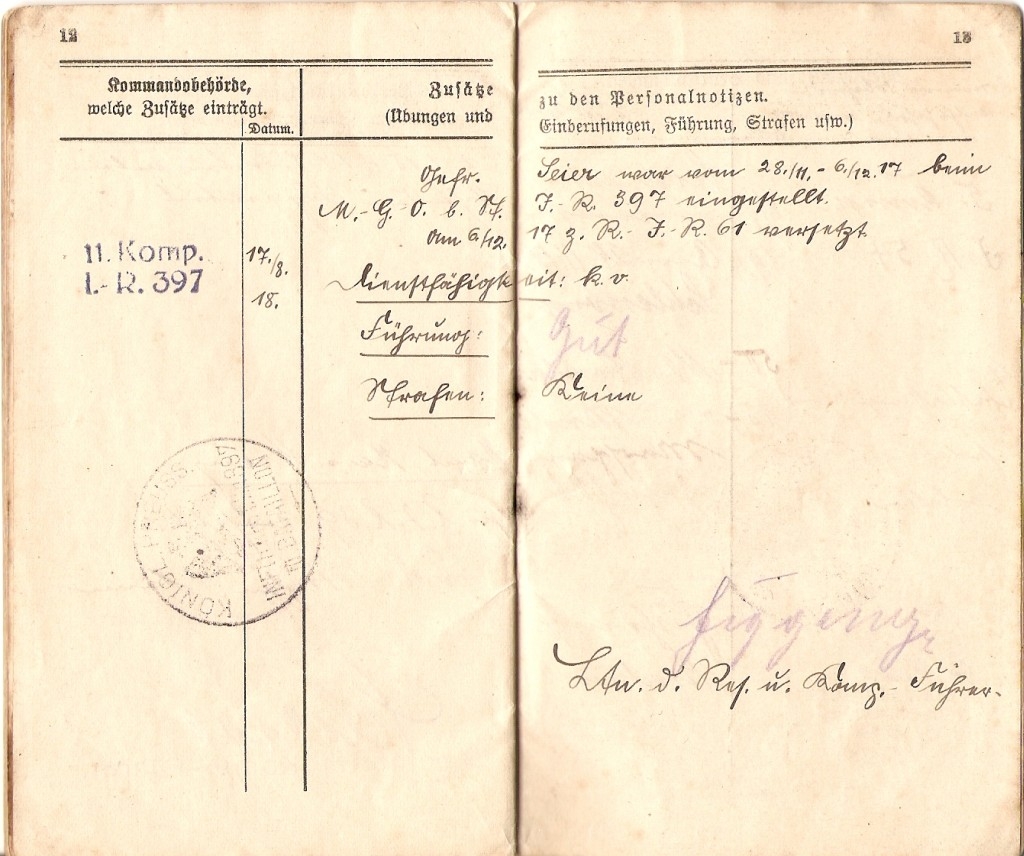 12
13
Kommandobehörde,
welche Zusätze einträgt.
Datum.
Zusätze zu den Personalnotizen.
(Übungen und Einberufungen, Führung, Strafen usw.)
Gefr. Seier war vom 28./11. - 6./12.17 beim
M.-G-O. b. St. I.-R. 397 eingestellt.
am 6./12. 17 z. R.-I-R. 61 versetzt
11. Komp.
I.-R. 397
17./8.
18.
Dienstfähigkeit: k. v.
Führung: Gut
Strafen: Keine
KÖNIGL. PREUSS.
INFTR.
BATAILLON
Ltn. d. Res. u. Komp.-Führer.